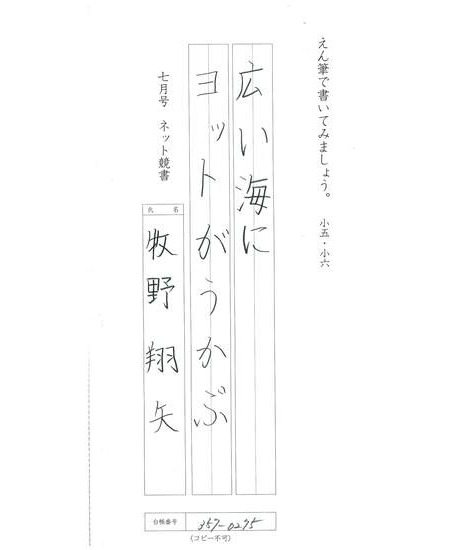 えん筆で書いてみましょう。 小五・小六
広い海に
ヨットがうかぶ
七月号 ネット競書
氏名
牧野翔矢
台帳番号 357-0275
(コピー不可)